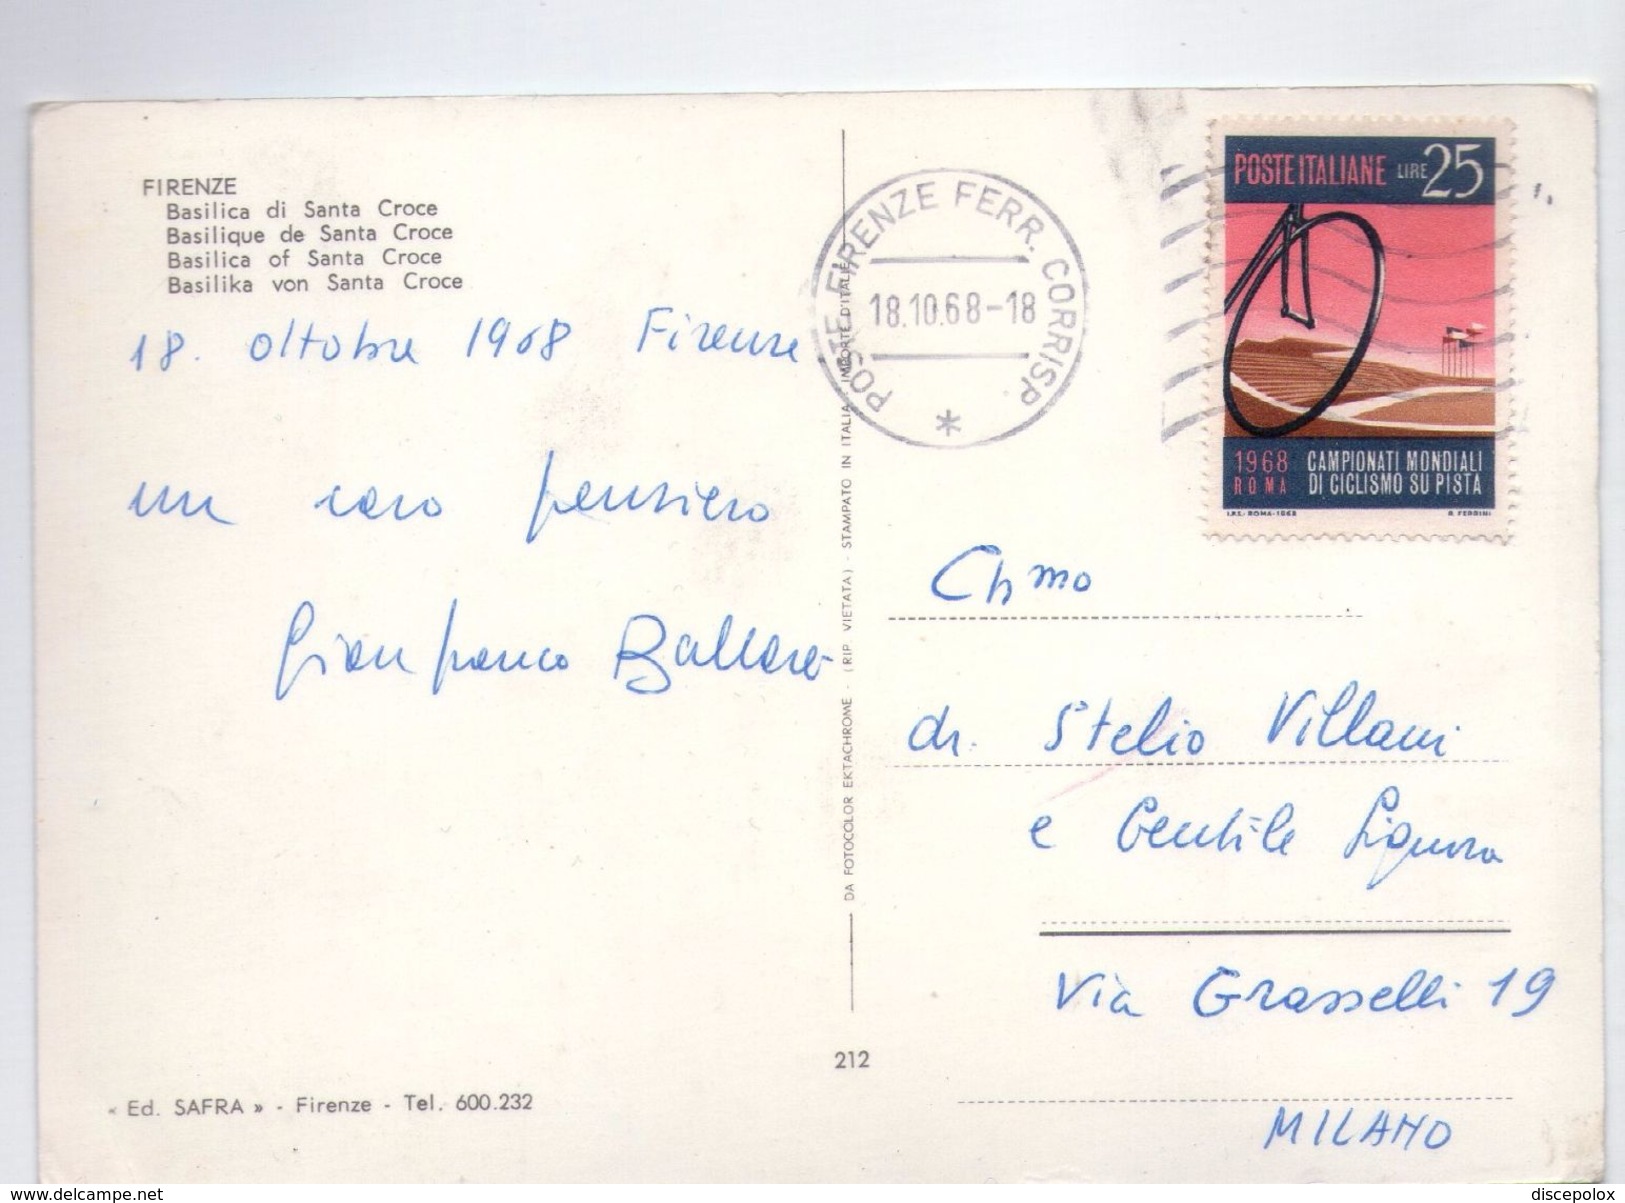 FIRENZE
Basilica di Santa Croce
Basilique de Santa Croce
Basilica of Santa Croce
Basilika von Santa Croce
18. ottobre 1968 Firenze
un caro pensiero
Gianfranco
« Ed. SAFRA » - Firenze - Tel. 600.232
DA FOTOCOLOR EKTACHROME - (RIP. VIETATA) - STAMPATO IN ITALIA - IMPORTÉ D'ITALIE
212
POSTE FIRENZE FERR. CORRISP.
18.10.68-18
*
POSTE ITALIANE LIRE 25
1968 ROMA CAMPIONATI MONDIALI
DI CICLISMO SU PISTA
I.P.S. - ROMA - 1968 R. FERRINI
Ch mo
dr. Stelio Villani
e Gentile Signora
Via Grasselli 19
MILANO
www.delcampe.net
discepolox